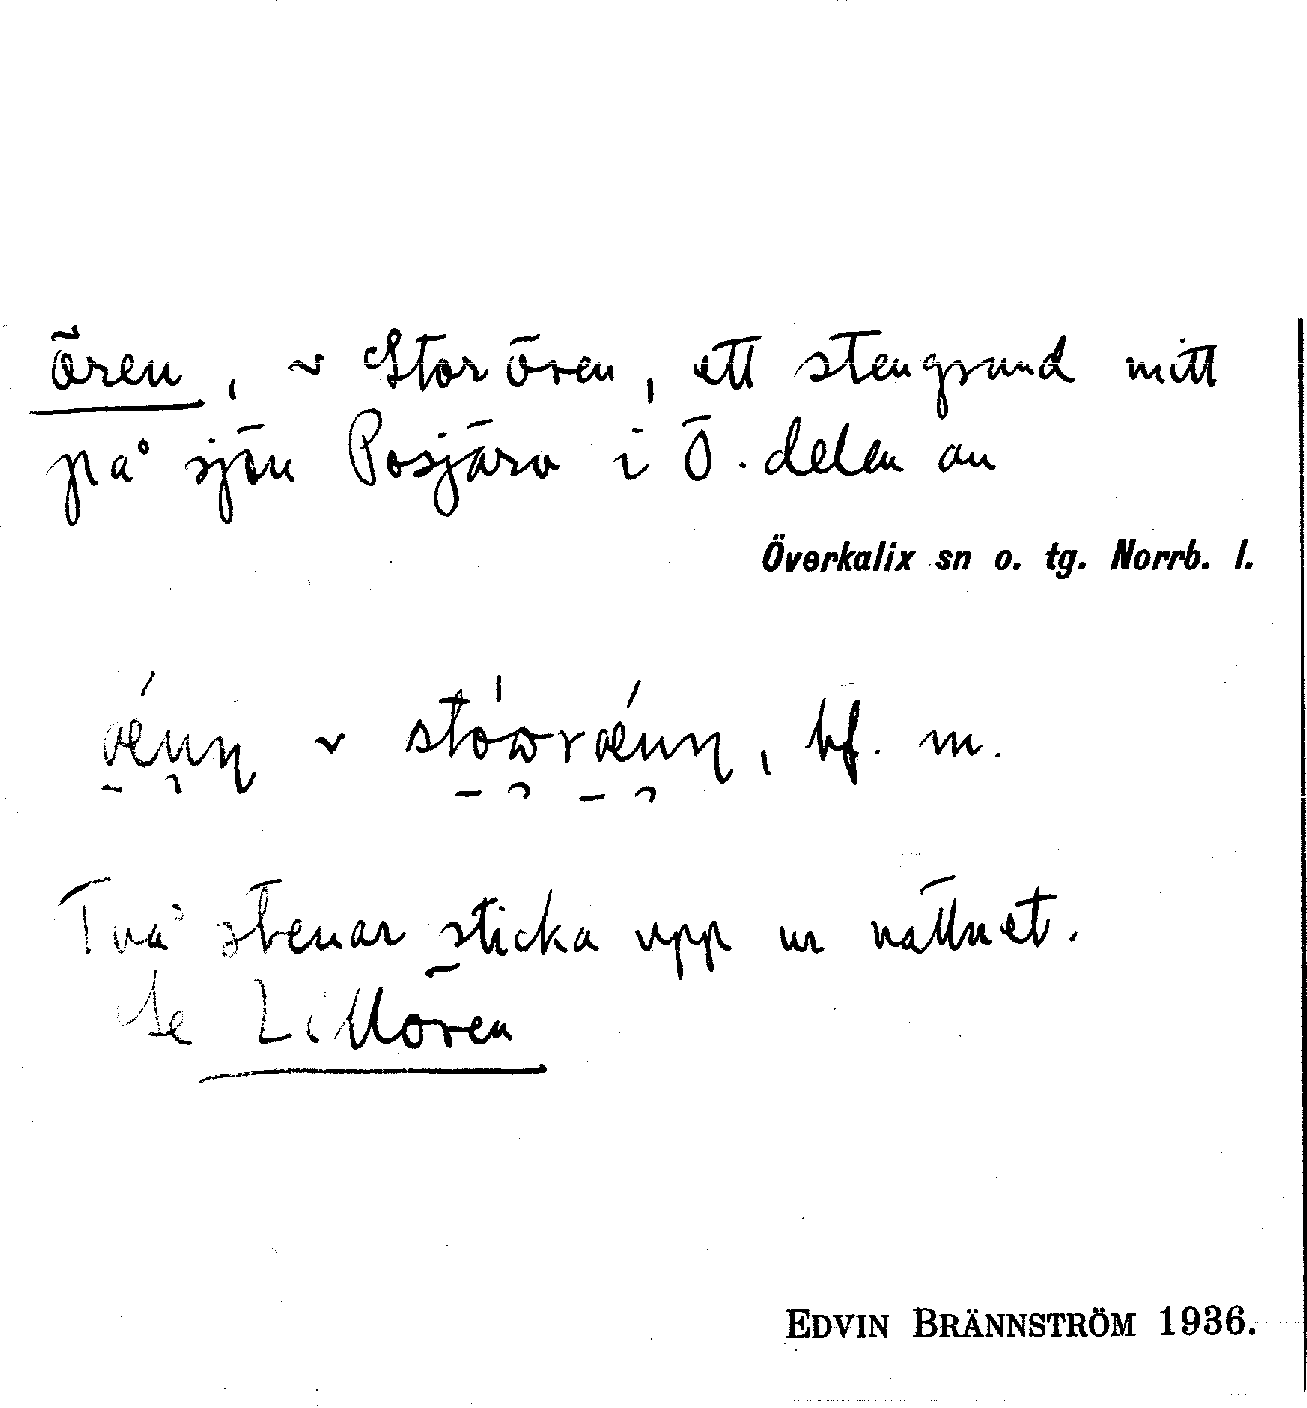 Ören, ~ Storören, ett stengrund mitt
på sjön Posjärv i Ö. delen av
Överkalix sn o. tg. Norrb. l.
bf. m.
Två stenar sticka upp ur vattnet.
Se Lillören
EDVIN BRÄNNSTRÖM 1936.